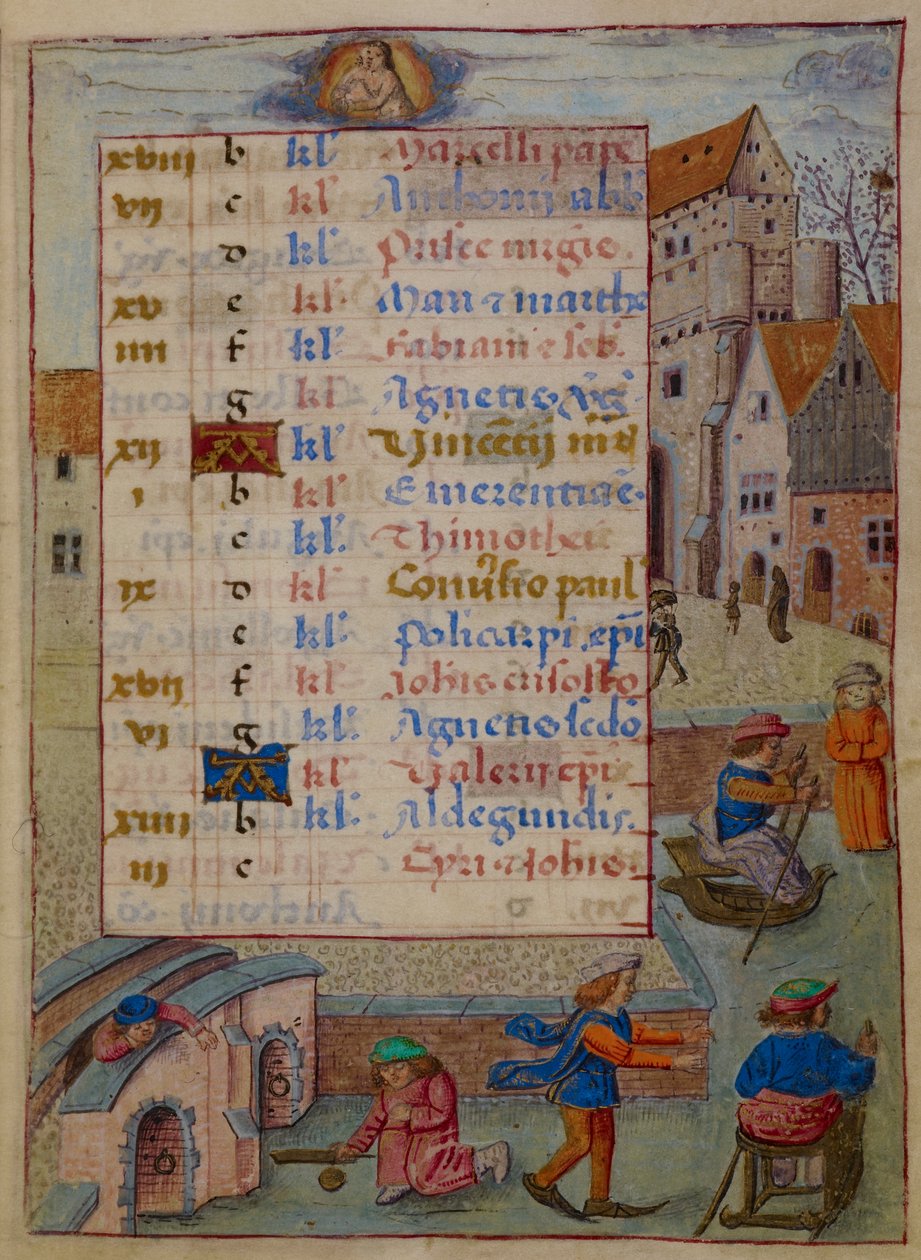 xviij b kl' Marcelli pape
vij c kl' Anthonij abb'
d kl' Prisce virgĩs.
xv e kl' Mari ⁊ marthe
iiij f kl' Fabiani e seb'.
g kl' Agnetis v̾g'
xij A kl' Vincẽcij mr̃
i b kl' Emerentiãe.
c kl' Thimothei
ix d kl' Conu̾sio paul'
e kl' Policarpi. ep̃i
xvij f kl' Joh̃is crisosto
vj g kl' Agnetis sc̃do
A kl' Valerij ep̃i
xiiij b kl' Aldegundis.
iij c Cyri ⁊ Joh̃is.